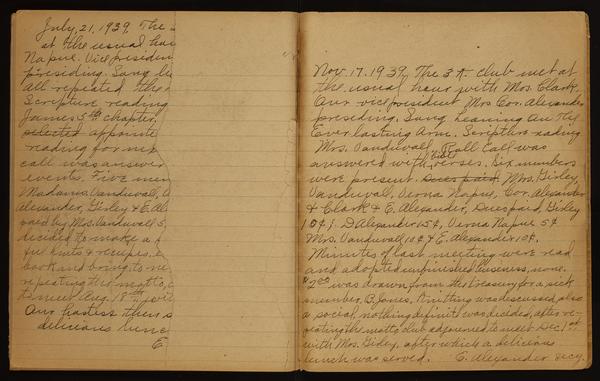 July, 21, 1939. The
at the usual hou
Napue. Vice presiden
presiding. Sang
All repeated the
Scripture reading
James 5th chapter,
selected appointe
reading for nex
call was answer
events. Five mem
Madams. Vanduvall,
Alexander, Girley & E. Al
by Mrs. Vanduvall 5
decided to make a
ful hints & recipes.
book and bring to
repeating the motto,
to meet Aug. 18th
Our hostess then s
delicious lunc
E
Nov. 17. 1939. The 3 A. club met at
the usual hour with Mrs. Clark.
Our vice president Mrs Cor. Alexander
presiding. Sang Leaning On The
Everlasting Arm. Scripture reading
Mrs. Vanduvall. Roll Call was
answered with Bible verses. Six members
were present. Dues paid. Mrs. Girley,
Vanduval, Verna Napue, Cor. Alexander
& Clark & E. Alexander, Dues paid, Girley
10¢, D Alexander 65¢, Verna Napue 5¢
Mrs. Vanduvall 10¢ & E. Alexander 10¢.
Minutes of last meeting were read
and adopted unfinished business, none.
$2.00 was drawn from the treasury for a sick
member, B. Jones. Knitting was discussed, also
a social, nothing definite was decided, after re-
peating the motto club adjourned to meet Dec 1st
with Mrs. Girley, after which a delicious
lunch was served. E. Alexander secy.